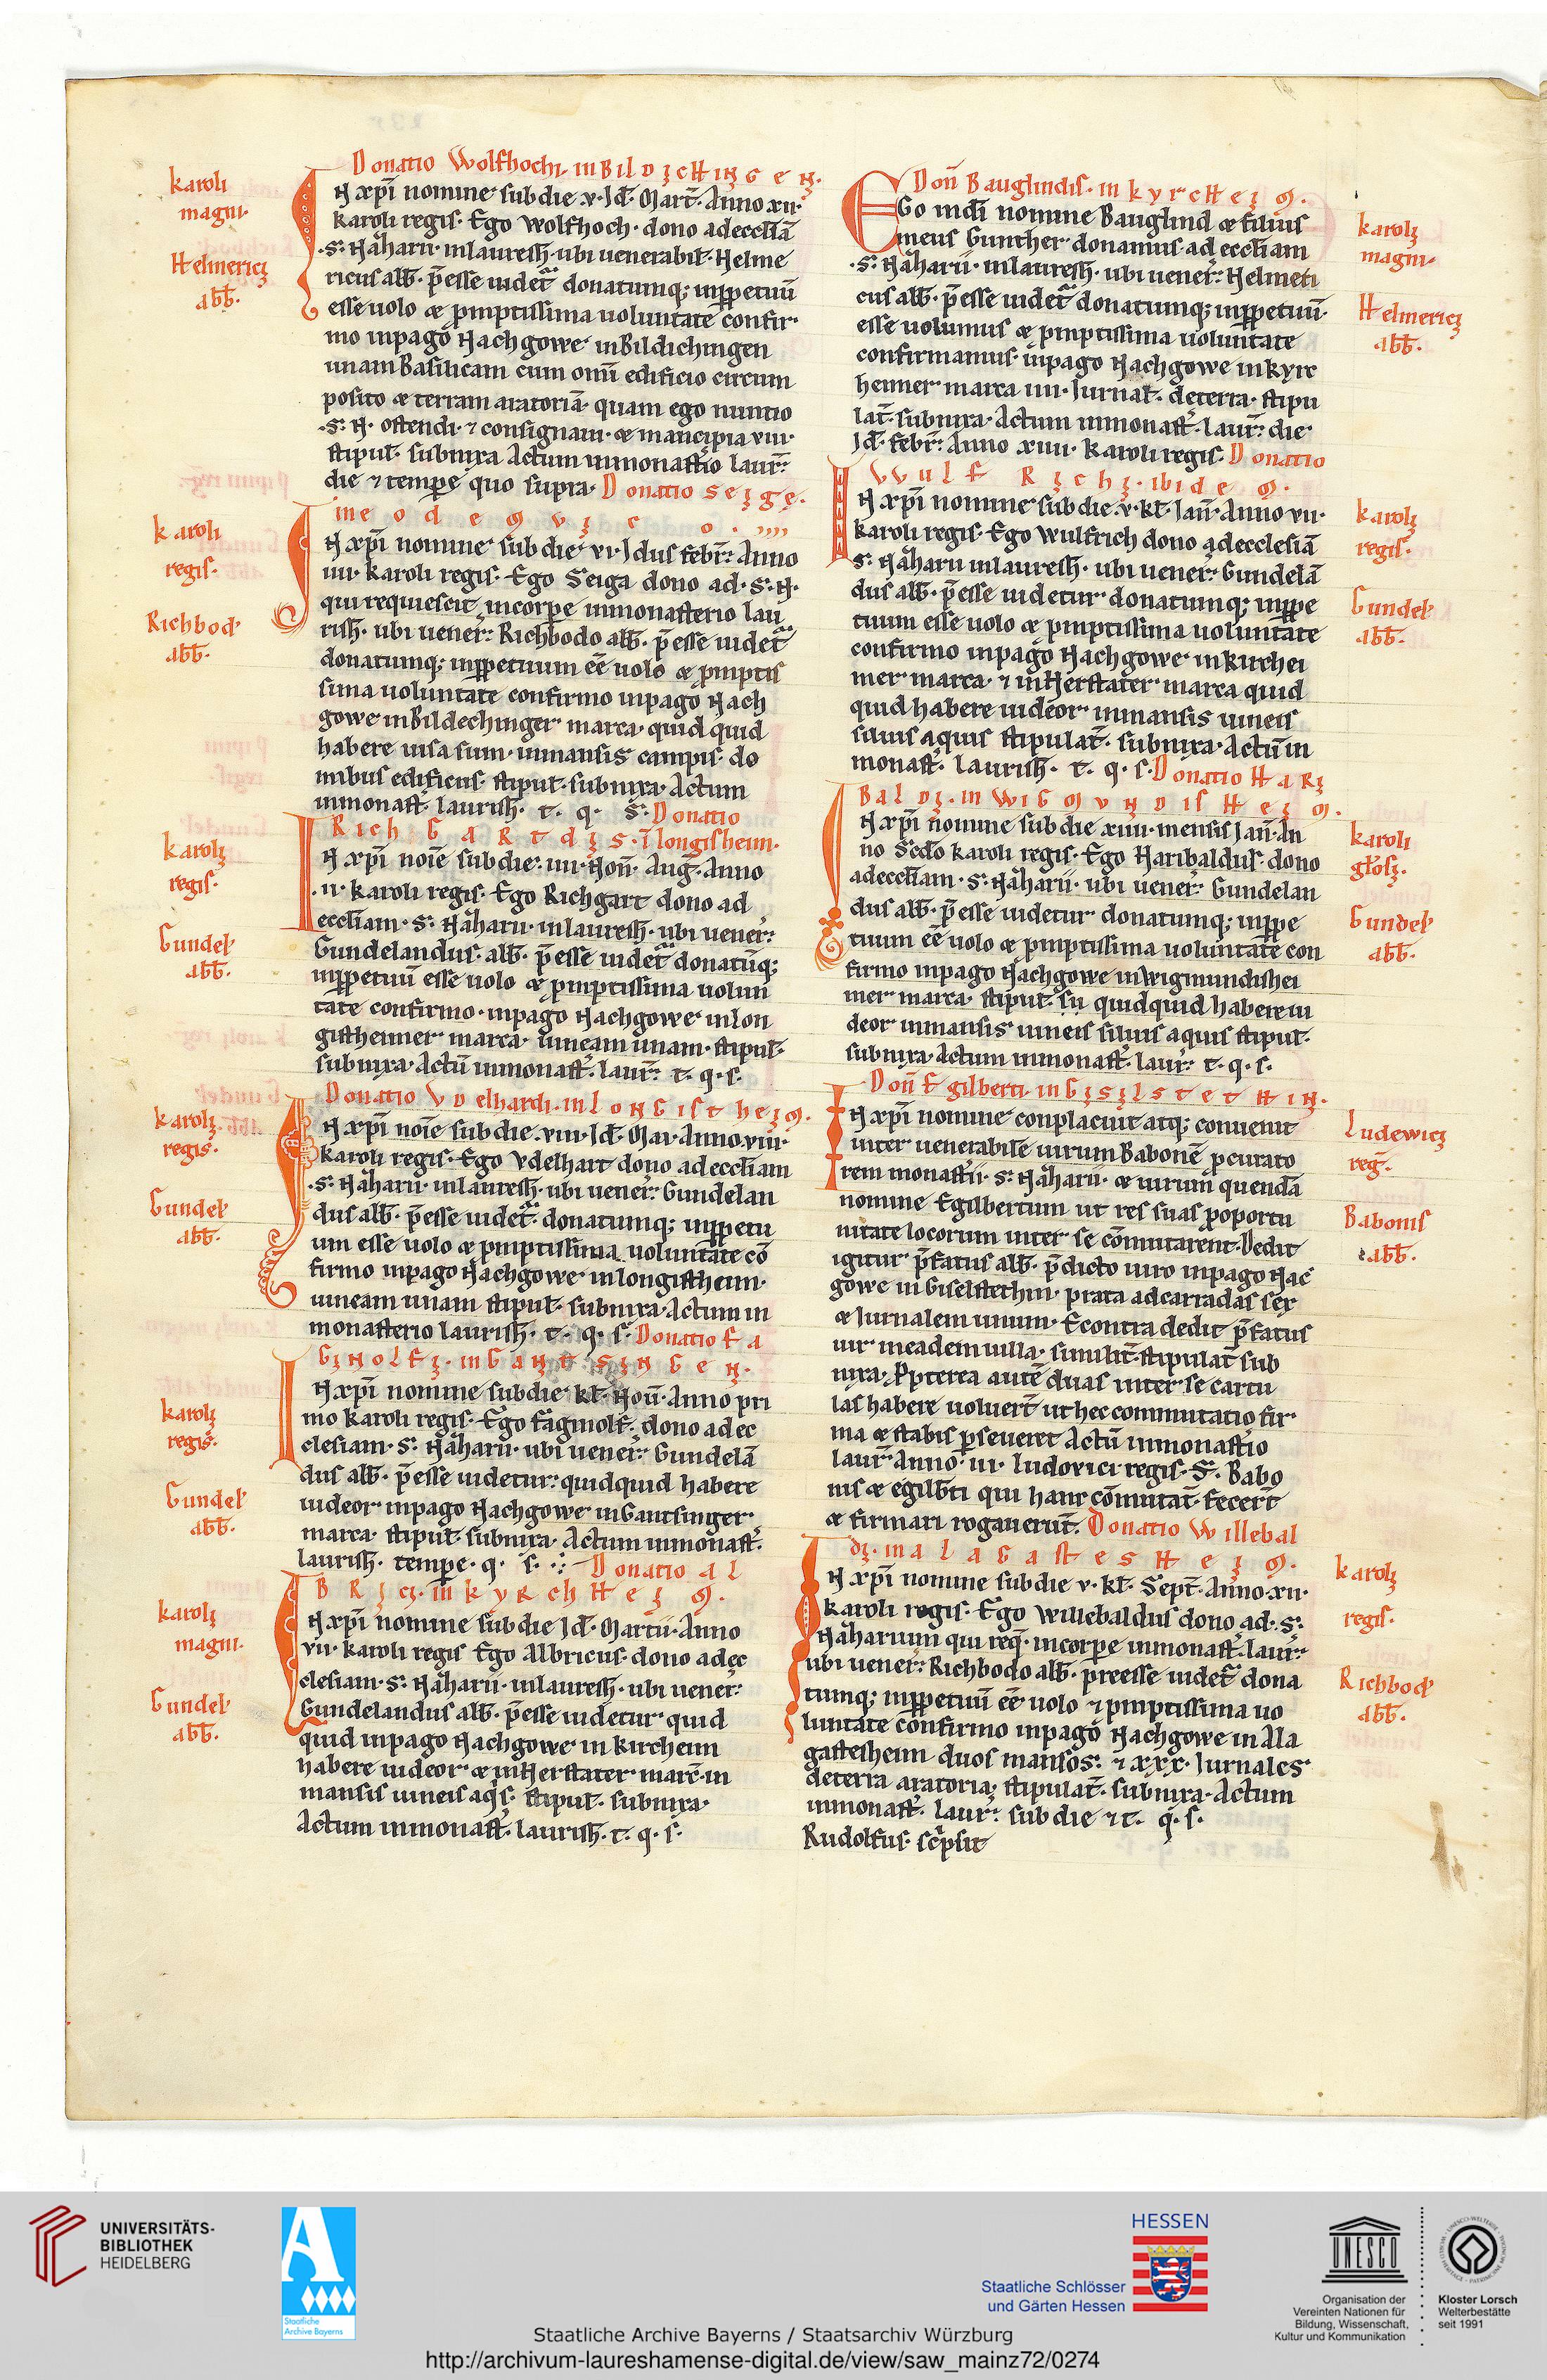 Donatio Wolfhochi. in Bildichingen.
karoli
magni.
Helmerici
abb̄.
In xp̄i nomine sub die v. Id̄. Mart̄. Anno xii.
karoli regis. Ego Wolfhoch. dono ad eccl̄iā
.S. Nazharii. in lauresh̄. ubi uenerabil̄. Helme
ricus abb̄. p̄esse uidet̄ donatumq; inp̱petuū
esse uolo & p̱mptissima uoluntate confir
mo in pago Nachgowe in Bildichingen
unam Basilicam cum om̄i edificio circum
posito & terram aratoriā quam ego nuntio
.S. N. ostendi. ⁊ consignaui. & mancipia viii.
stipul̄. subnixa Actum in monast̄io laur̄.
die ⁊ tempe quo supra. Donatio Seige.
in eodem vico.
karoli
regis.
Richbod̄
abb̄.
In xp̄i nomine sub die vi. Idus febr̄. Anno
iiii. karoli regis. Ego Seiga dono ad. S. N.
qui requiescit in corpe in monasterio lau
rish̄. ubi uener̄. Richbodo abb̄. p̄esse uidet̄
donatumq; inp̱petuum eē uolo & p̱mptis
sima uoluntate confirmo in pago Nach
gowe in Bildechinger marca. quidquid
habere uisa sum. in mansis campis. do
mibus edificiis. stipul̄. subnixa. Actum
in monast̄. laurish̄. t. q. s. Donatio
Richgartdis. ī longisheim.
karoli
regis.
Gundel̄
abb̄.
In xp̄i noīe sub die. iiii. Non̄. Auḡ. Anno
.ii. karoli regis. Ego Richgart dono ad
eccl̄iam. S. Nazharii. in lauresh̄. ubi uener̄.
Gundelandus. abb̄. p̄esse uidet̄ donatūq;
inp̱petuū esse uolo & p̱mptissima uolun
tate confirmo. in pago Nachgowe in lon
gistheimer marca. uineam unam. stipul̄.
subnixa. Actū in monast̄. laur̄. t. q. s.
Donatio Vdelhardi. in longistheim.
karoli
regis.
Gundel̄
abb̄.
In xp̄i noīe sub die. viii. Id̄. Mai. Anno. viii.
karoli regis. Ego Vdelhart dono ad eccl̄iam
.S. Nazharii. in lauresh̄. ubi uener̄. Gundelan
dus abb̄. p̄esse uidet̄. donatumq; inp̱petu
um esse uolo & p̱mptissima uoluntate cō
firmo in pago Nachgowe in longistheim.
uineam unam stipul̄. subnixa. Actum in
monasterio laurish̄. t. q. s. Donatio fa
ginolfi. in Gantsingen.
karoli
regis.
Gundel̄
abb̄.
In xp̄i nomine sub die kl̄. Nou̅. Anno pri
mo karoli regis. Ego faginolf. dono ad ec
clesiam. S. Nazharii. ubi uener̄. Gundelā
dus abb̄. p̄esse uidetur. quidquid habere
uideor in pago Nachgowe in Gantsinger
marca. stipul̄. subnixa. Actum in monast̄.
laurish̄. tempe. q. s. Donatio al
brici. in kyrchheim.
karoli
magni.
Gundel̄
abb̄.
In xp̄i nomine sub die Id̄. Martii. Anno
vii. karoli regis Ego Albricus. dono ad ec
clesiam. S. Nazharii. in lauresh̄. ubi uener̄.
Gundelandus abb̄. p̄esse uidetur quid
quid in pago Nachgowe in kircheim
habere uideor & in Herstater marc̄. in
mansis uineis aq̄s. stipul̄. subnixa.
Actum in monast̄. laurish̄. t. q. s.
Don̄ Bauglindis. in kyrcheim.
karoli
magni.
Helmerici
abb̄.
Ego in dī nomine Bauglind & filius
meus Gunther donamus ad eccl̄iam
.S. Nazharii. in lauresh̄. ubi uener̄. Helmeri
cus abb̄. p̄esse uidet̄ donatumq; inp̱petuū.
esse uolumus & p̱mptissima uoluntate
confirmamus. in pago Nachgowe in kyrc
heimer marca iiii. Iurnal̄. de terra. stipu
lat̄. subnixa. Actum in monast̄. laur̄. die
Id̄. febr̄. Anno xiiii. karoli regis. Donatio
Wulfrichi. ibidem.
karoli
regis.
Gundel̄
abb̄.
In xp̄i nomine sub die. v. kl̄. Ian̄. Anno vii.
karoli regis. Ego Wulfrich dono ad ecclesiā
S. Nazharii in lauresh̄. ubi uener̄. Gundelā
dus abb̄. p̄esse uidetur donatumq; inp̱pe
tuum esse uolo & p̱mptissima uoluntate
confirmo in pago Nachgowe in kirchei
mer marca. ⁊ in Herstater marca quid
quid habere uideor in mansis uineis
siluis aquis stipulat̄. subnixa. Actū in
monast̄. laurish̄. t. q. s. Donatio Hari
baldi. in Wigmundisheim.
karoli
gl̄osi.
Gundel̄
abb̄.
In xp̄i nomine sub die xiiii. mensis Ian̄. An
no Sc̄do karoli regis. Ego Haribaldus dono
ad eccl̄iam. S. Nazharii. ubi uener̄. Gundelan
dus abb̄. p̄esse uidetur donatumq; inp̱pe
tuum eē uolo & p̱mptissima uoluntate con
firmo in pago Nachgowe in wigmundishei
mer marca. stipul̄. su quidquid habere ui
deor in mansis uineis siluis aquis stipul̄.
subnixa. Actum in monast̄. laur̄. t. q. s.
Don̄ Egilberti. in Gisilstethin.
Ludewici
reḡ.
Babonis
abb̄.
In xp̄i nomine conplacuit atq; conuenit
inter uenerabilē uirum Babonē p̱curato
rem monast̄ii. S. Nazharii. & uirum quendā
nomine Egilbertum ut res suas p̱ oportu
nitate locorum inter se cōmutarent. Dedit
igitur p̄fatus abb̄. p̄dicto uiro in pago Nac
gowe in Giselstethin. prata ad carradas sex
& Iurnalem unum. Econtra dedit p̄fatus
uir in eadem uilla. similit̄. stipulat̄ sub
nixa. P̱pterea autē duas inter se cartu
las habere uoluer̄t ut hec commutatio fir
ma & stabis p̱seueret Actū in monast̄io
laur̄ Anno. iii. ludovici regis. S. Babo
nis & egilb̄ti qui hanc cōmutat̄. fecer̄t
& firmari rogauerūt. Donatio Willebal
di. in alagastesheim.
karoli
regis.
Richbod̄
abb̄.
In xp̄i nomine sub die v. kl̄. Sept̄. Anno. xii.
karoli regis. Ego willebaldus dono ad. S.
Nazharium qui req̄. in corpe in monast̄. laur̄.
ubi uener̄. Richbodo abb̄. preesse uidet̄ dona
tumq; inp̱petuū eē uolo ⁊ p̱mptissima uo
luntate confirmo in pago Nachgowe in Ala
gastesheim duos mansos. ⁊ xxx. Iurnales
de terra aratoria, stipulat̄. subnixa. Actum
in monast̄. laur̄. sub die ⁊ t. q. s.
Rudolfus. sc̄psit
UNIVERSITÄTS-
BIBLIOTHEK
HEIDELBERG
Staatliche
Archive Bayerns
HESSEN
Staatliche Schlösser
und Gärten Hessen
UNESCO
Organisation der
Vereinten Nationen für
Bildung, Wissenschaft,
Kultur und Kommunikation
Kloster Lorsch
Welterbestätte
seit 1991
Staatliche Archive Bayerns / Staatsarchiv Würzburg
http://archivum-laureshamense-digital.de/view/saw_mainz72/0274